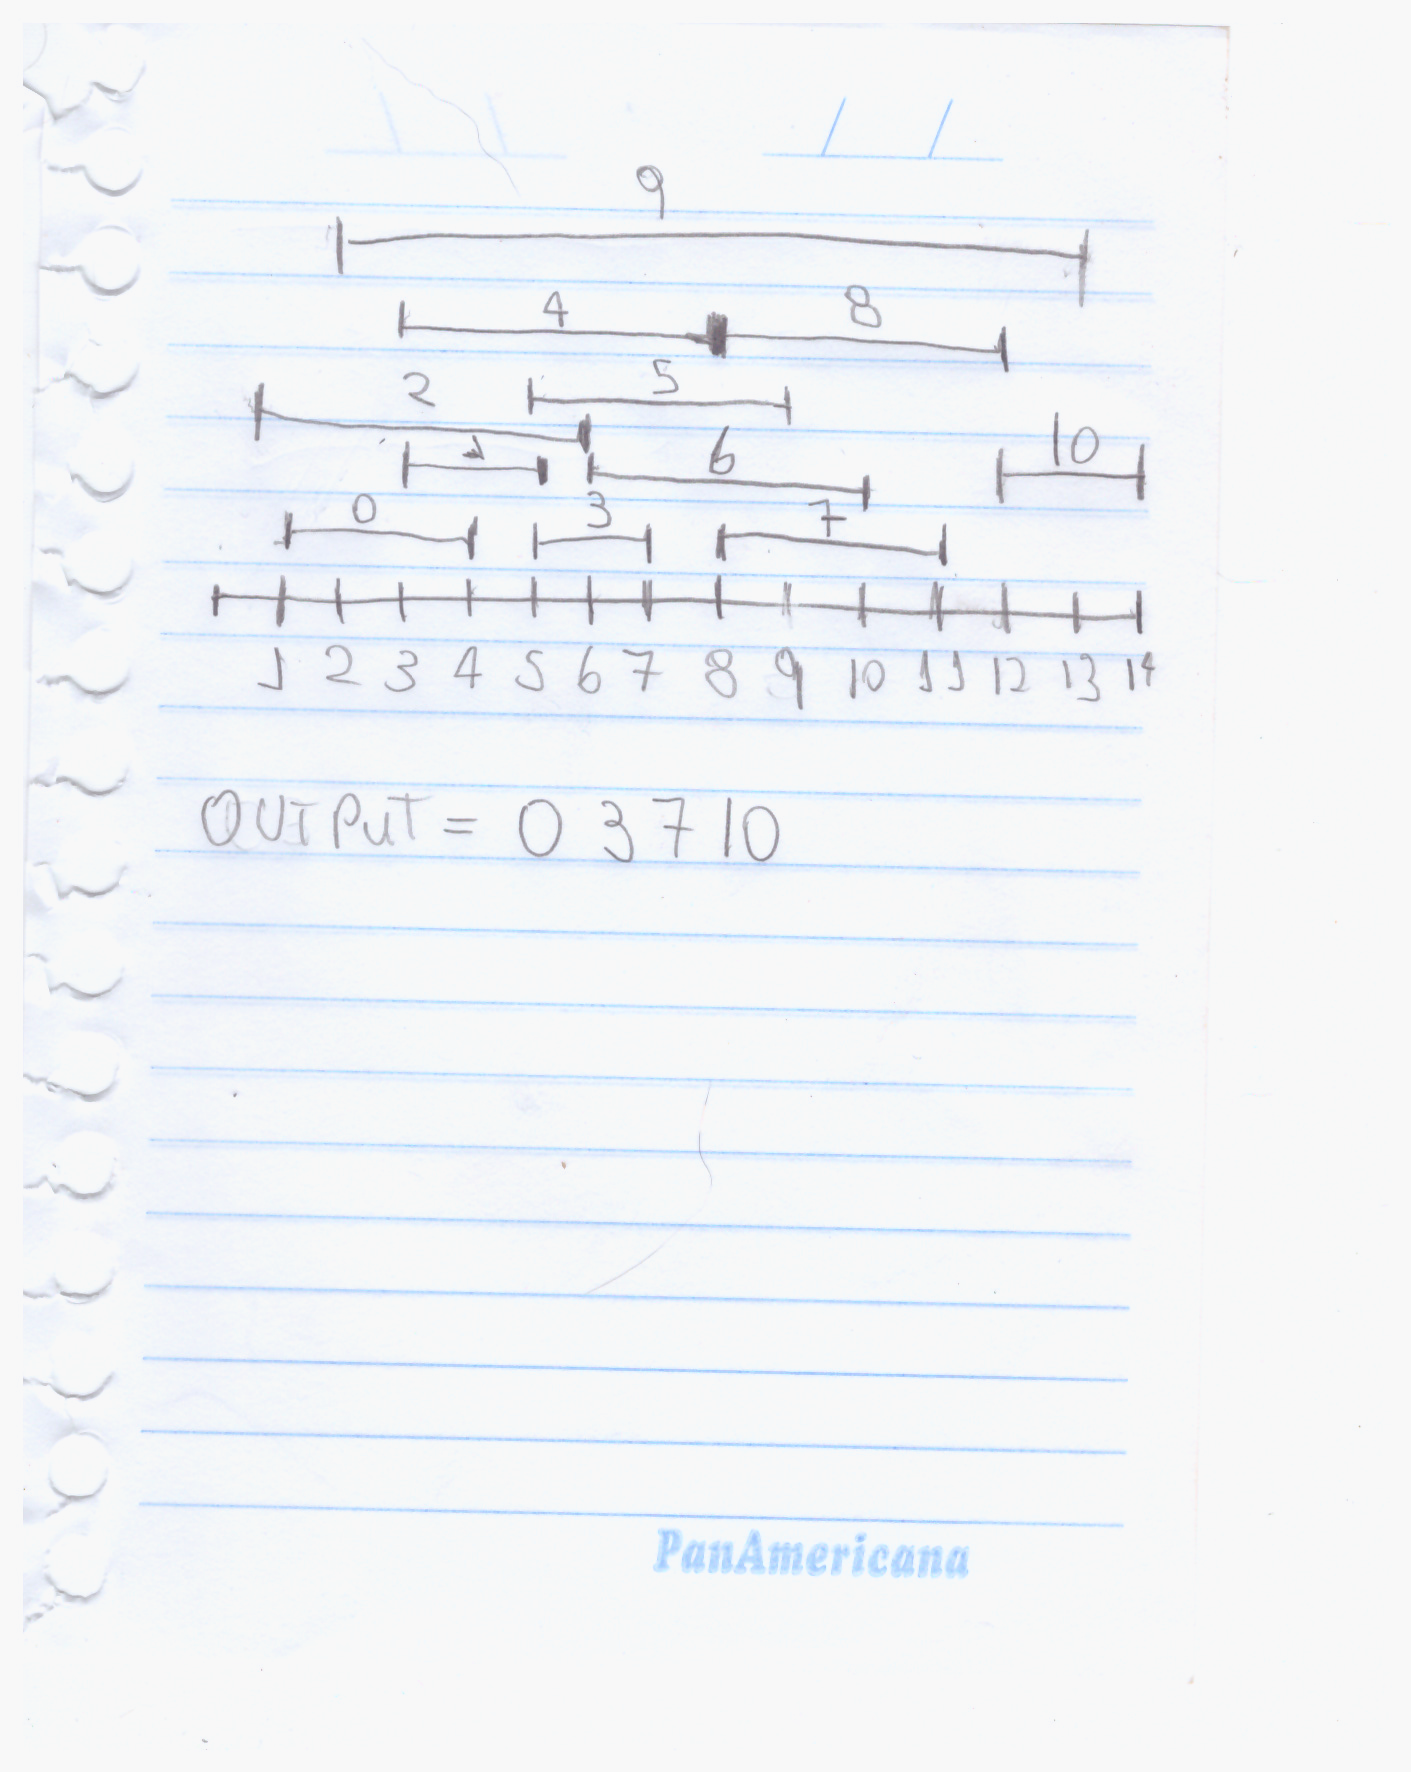 9
4 8
2 5
1 6 10
0 3 7
1 2 3 4 5 6 7 8 9 10 11 12 13 14
OUTPUT = 0 3 7 10
PanAmericana